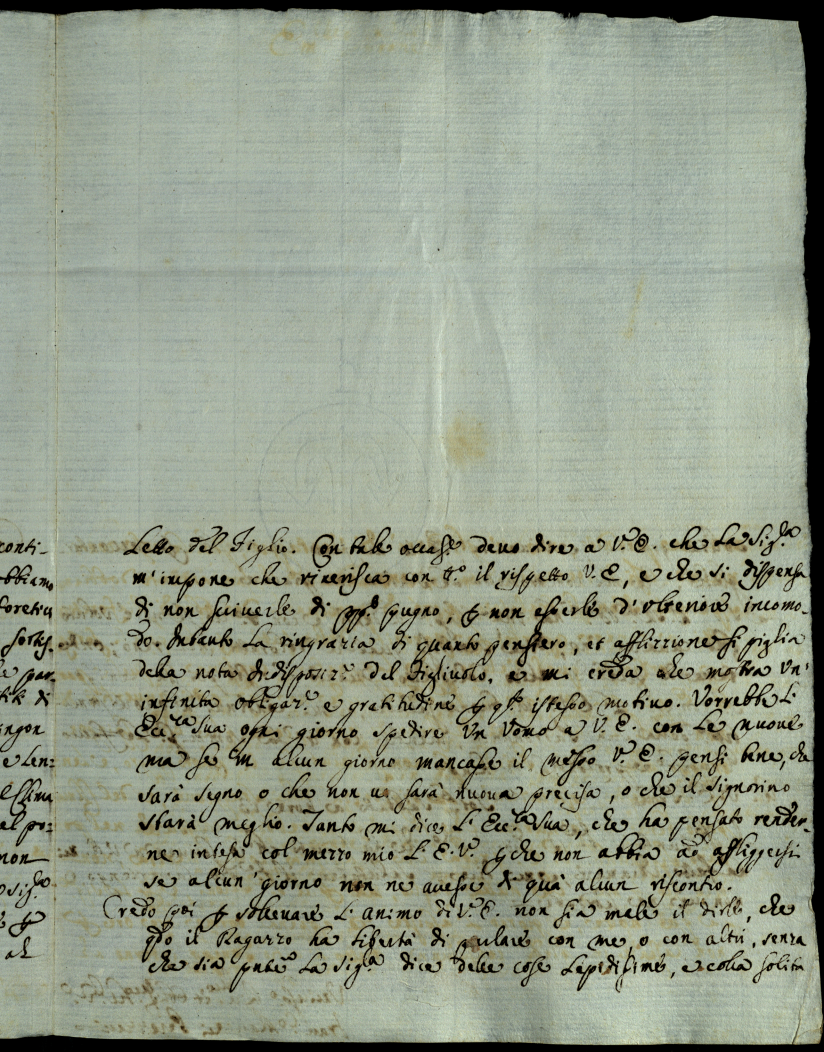 conti-
bbiamo
foretici
sortis-
le par-
di
ngon
e Len:
issima
al po:
non
al
Letto del Figlio. Con tale occas.e devo dire a V.a E. che La Sig.ra
m'impone che riverisca con t.o il rispetto V. E, e che si dispensa
di non scriverle di pp.o pugno, p non esserle d'ulteriore incomo-
do. Intanto La ringrazia di quanto pensiero, et afflizzione si piglia
della nota Indisposiz.e del Figliuolo, e mi creda che mostra un'
infinita obligaz.e e gratitudine p q.to istesso motivo. Vorrebbe L'
Ecc.za Sua ogni giorno spedire un Uomo a V. E. con Le nuove
ma se in alcun giorno mancasse il messo V.a E. pensi bene, che
sarà segno o che non vi sarà nuova precisa, o che il Signorino
starà meglio. Tanto mi dice L' Ecc.za Sua, che ha pensato render-
ne intesa col mezzo mio L' E. V.a pche non abbia ad affliggersi
se alcun' giorno non ne avesse di quà alcun riscontro.
Credo poi p sollevare L' animo di V.a E. non sia male il dirle, che
qdo il Ragazzo ha Libertà di parlare con me, o con altri, senza
che sia pnte La Sig.ra dice delle cose Lepidissime, e colla solita